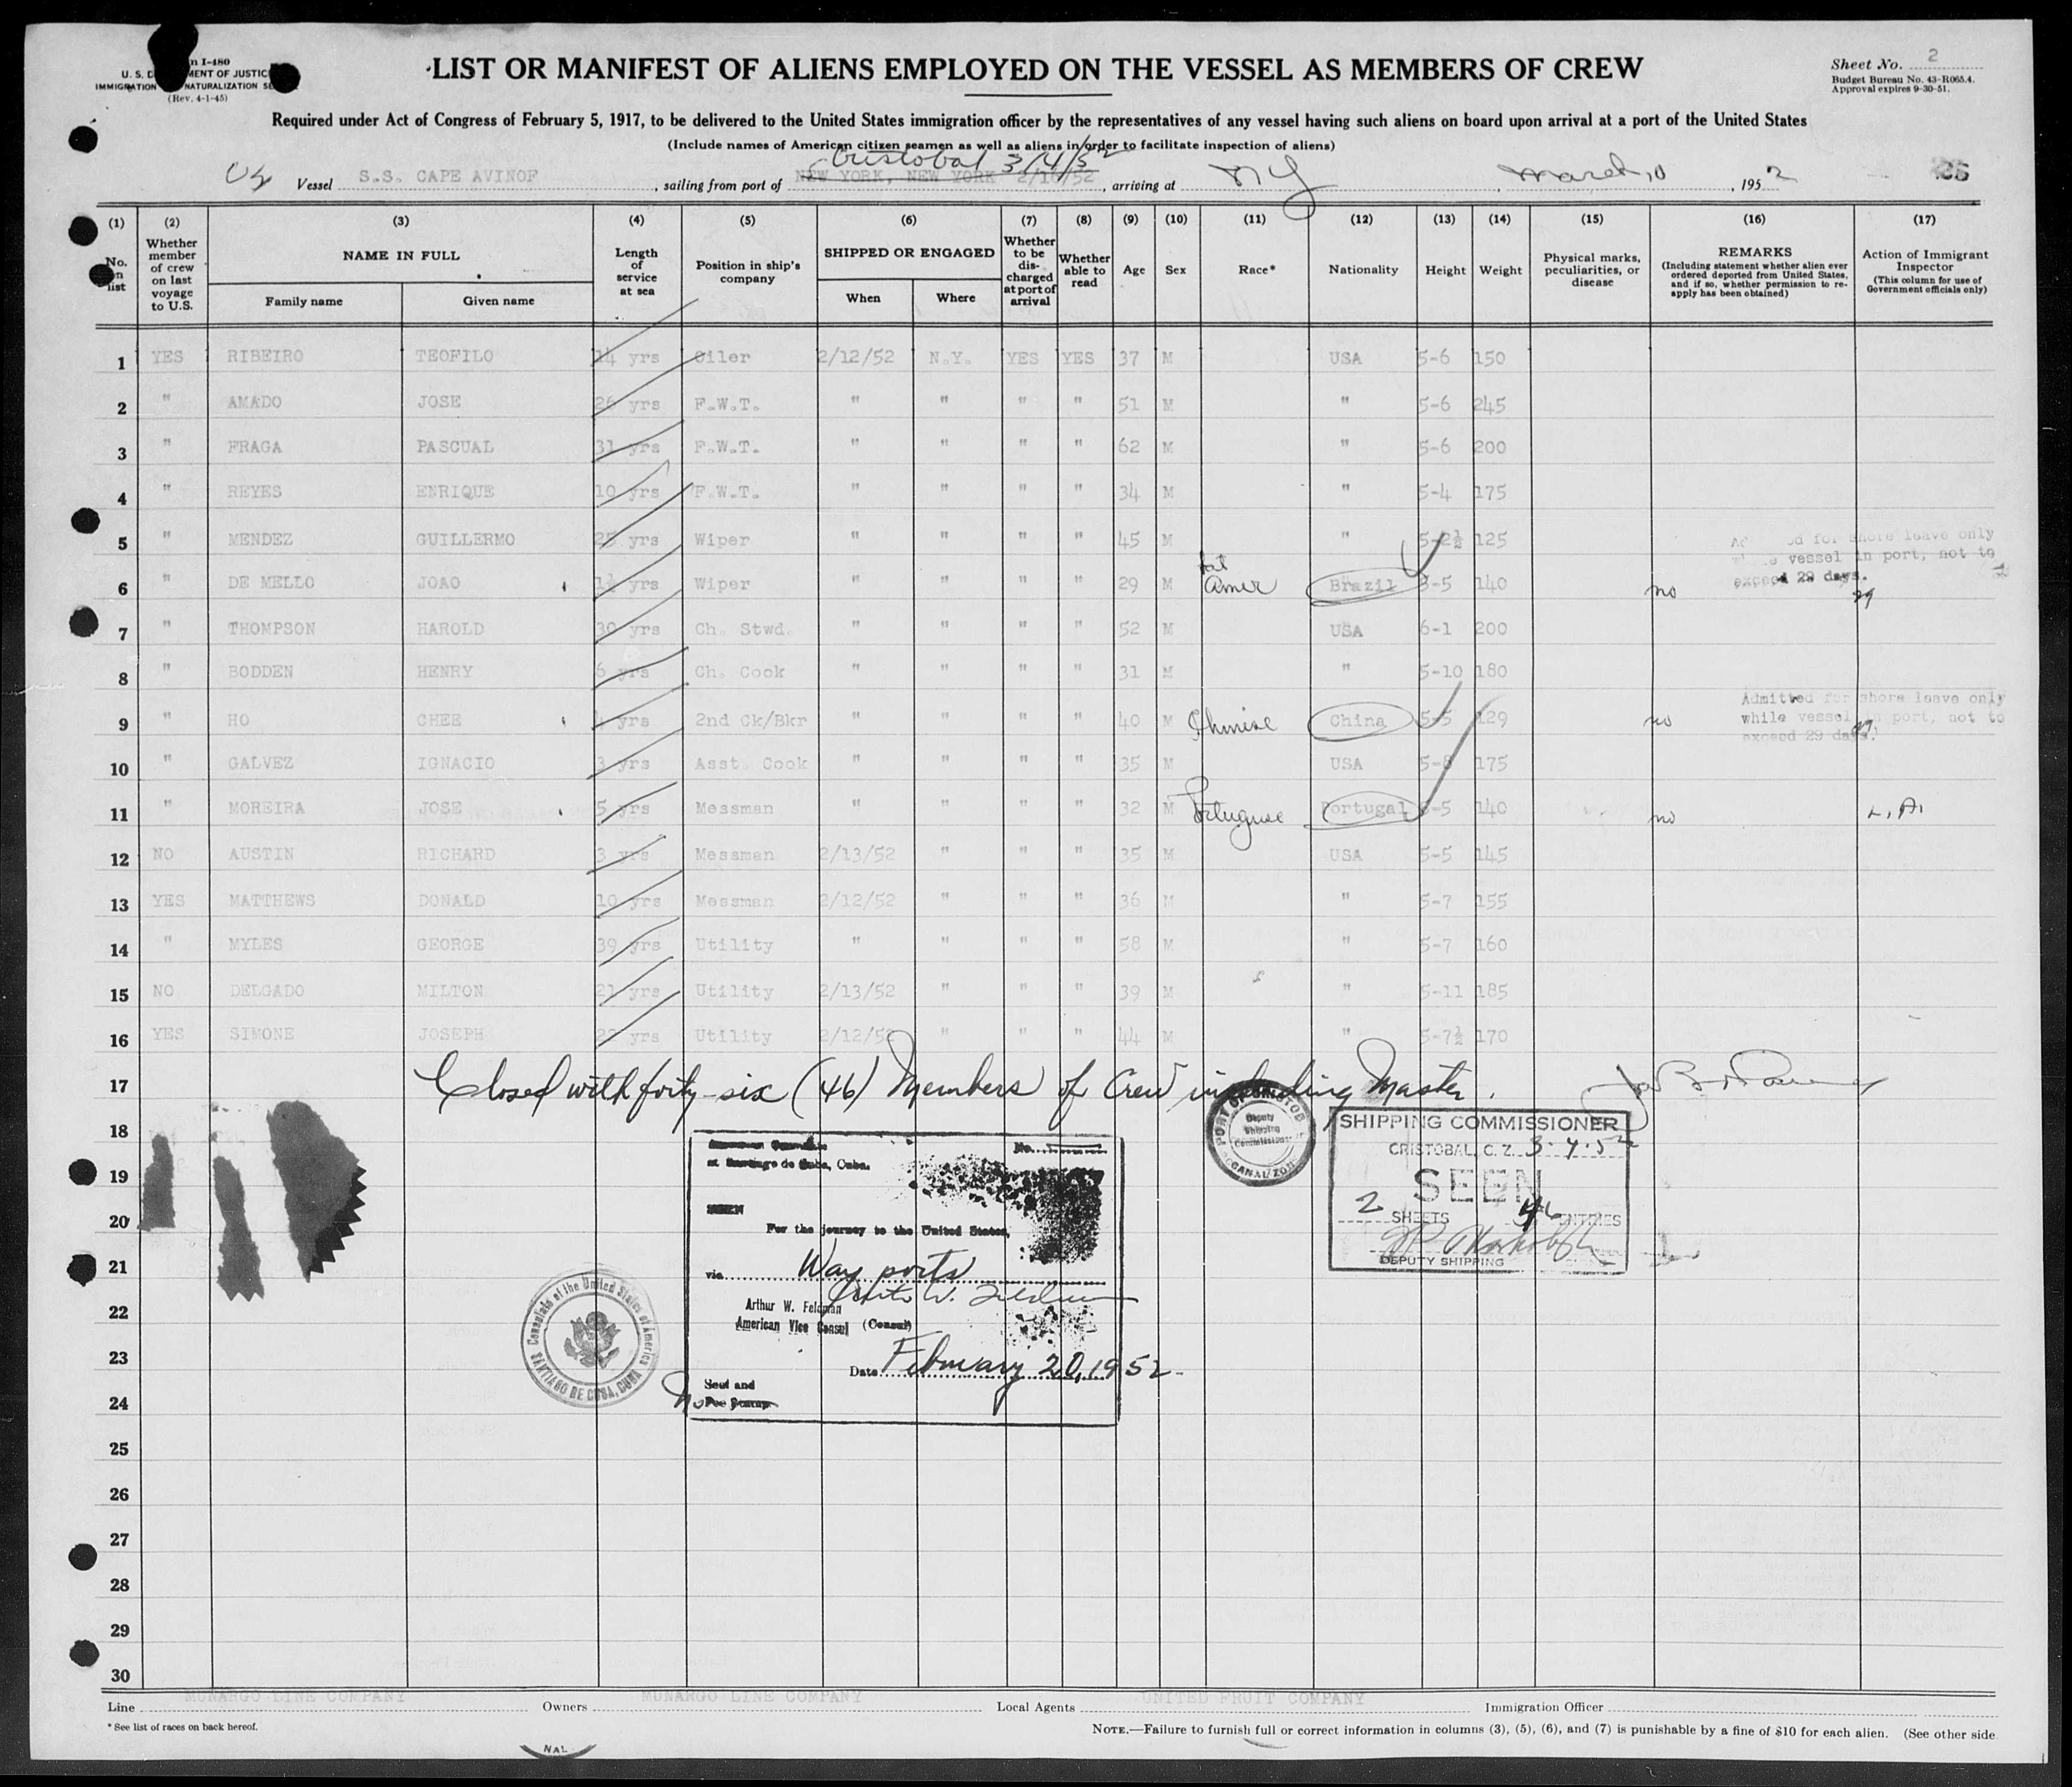 Form I-480
U. S. DEPARTMENT OF JUSTICE
IMMIGRATION NATURALIZATION SE
(Rev. 4-1-45)
LIST OR MANIFEST OF ALIENS EMPLOYED ON THE VESSEL AS MEMBERS OF CREW
Sheet No. 2
Budget Bureau No. 43-R065.4.
Approval expires 9-30-51.
Required under Act of Congress of February 5, 1917, to be delivered to the United States immigration officer by the representatives of any vessel having such aliens on board upon arrival at a port of the United States
(Include names of American citizen seamen as well as aliens in order to facilitate inspection of aliens)
Cristobal 3/4/52
Vessel S.S. CAPE AVINOF, sailing from port of NEW YORK, NEW YORK, arriving at NY, March 10, 1952
(1) (2) (3) (4) (5) (6) (7) (8) (9) (10) (11) (12) (13) (14) (15) (16) (17)
No. on list
Whether member of crew on last voyage to U.S.
NAME IN FULL
Family name Given name
Length of service at sea
Position in ship's company
SHIPPED OR ENGAGED
When Where
Whether to be discharged at port of arrival
Whether able to read
Age
Sex
Race*
Nationality
Height
Weight
Physical marks, peculiarities, or disease
REMARKS
(Including statement whether alien ever ordered deported from United States, and if so, whether permission to reapply has been obtained)
Action of Immigrant Inspector
(This column for use of Government officials only)
1 YES RIBEIRO TEOFILO 14 yrs Oiler 2/12/52 N.Y. YES YES 37 M USA 5-6 150
2 " AMADO JOSE 26 yrs F.W.T. " " " " 51 M " 5-6 245
3 " FRAGA PASCUAL 31 yrs F.W.T. " " " " 62 M " 5-6 200
4 " REYES ENRIQUE 10 yrs F.W.T. " " " " 34 M " 5-4 175
5 " MENDEZ GUILLERMO 25 yrs Wiper " " " " 45 M " 5-2½ 125
6 " DE MELLO JOAO 1½ yrs Wiper " " " " 29 M Lat Amer Brazil 5-5 140 no
for shore leave only
vessel in port, not to
exceed 29 days.
7 " THOMPSON HAROLD 30 yrs Ch. Stwd. " " " " 52 M USA 6-1 200
8 " BODDEN HENRY 6 yrs Ch. Cook " " " " 31 M " 5-10 180
9 " HO CHEE yrs 2nd Ck/Bkr " " " " 40 M Chinese China 5-5 129 no
Admitted for shore leave only
while vessel in port, not to
exceed 29 days.
10 " GALVEZ IGNACIO 3 yrs Asst. Cook " " " " 35 M USA 5-8 175
11 " MOREIRA JOSE 5 yrs Messman " " " " 32 M Portuguese Portugal 5-5 140 no
12 NO AUSTIN RICHARD 3 yrs Messman 2/13/52 " " " 35 M USA 5-5 145
13 YES MATTHEWS DONALD 10 yrs Messman 2/12/52 " " " 36 M " 5-7 155
14 " MYLES GEORGE 39 yrs Utility " " " " 58 M " 5-7 160
15 NO DELGADO MILTON 21 yrs Utility 2/13/52 " " " 39 M " 5-11 185
16 YES SIMONE JOSEPH yrs Utility 2/12/52 " " " 44 M " 5-7½ 170
17 Closed with forty-six (46) Members of Crew including Master.
18
19
20
21
22
23
24
25
26
27
28
29
30
PORT OF CRISTOBAL
Deputy Shipping Commissioner
CANAL ZONE
SHIPPING COMMISSIONER
CRISTOBAL, C. Z. 3-4-52
SEEN
2 SHEETS 46 ENTRIES
DEPUTY SHIPPING
American Consulate No.
at Santiago de Cuba, Cuba.
SEEN
For the journey to the United States,
via Way ports
Arthur W. Feldman
American Vice Consul (Consul)
Date February 20, 1952
Seal and
No Fee Stamp
Consulate of the United States of America
SANTIAGO DE CUBA, CUBA
Line MUNARGO LINE COMPANY Owners MUNARGO LINE COMPANY Local Agents UNITED FRUIT COMPANY Immigration Officer
* See list of races on back hereof.
NOTE.—Failure to furnish full or correct information in columns (3), (5), (6), and (7) is punishable by a fine of $10 for each alien. (See other side
NAL